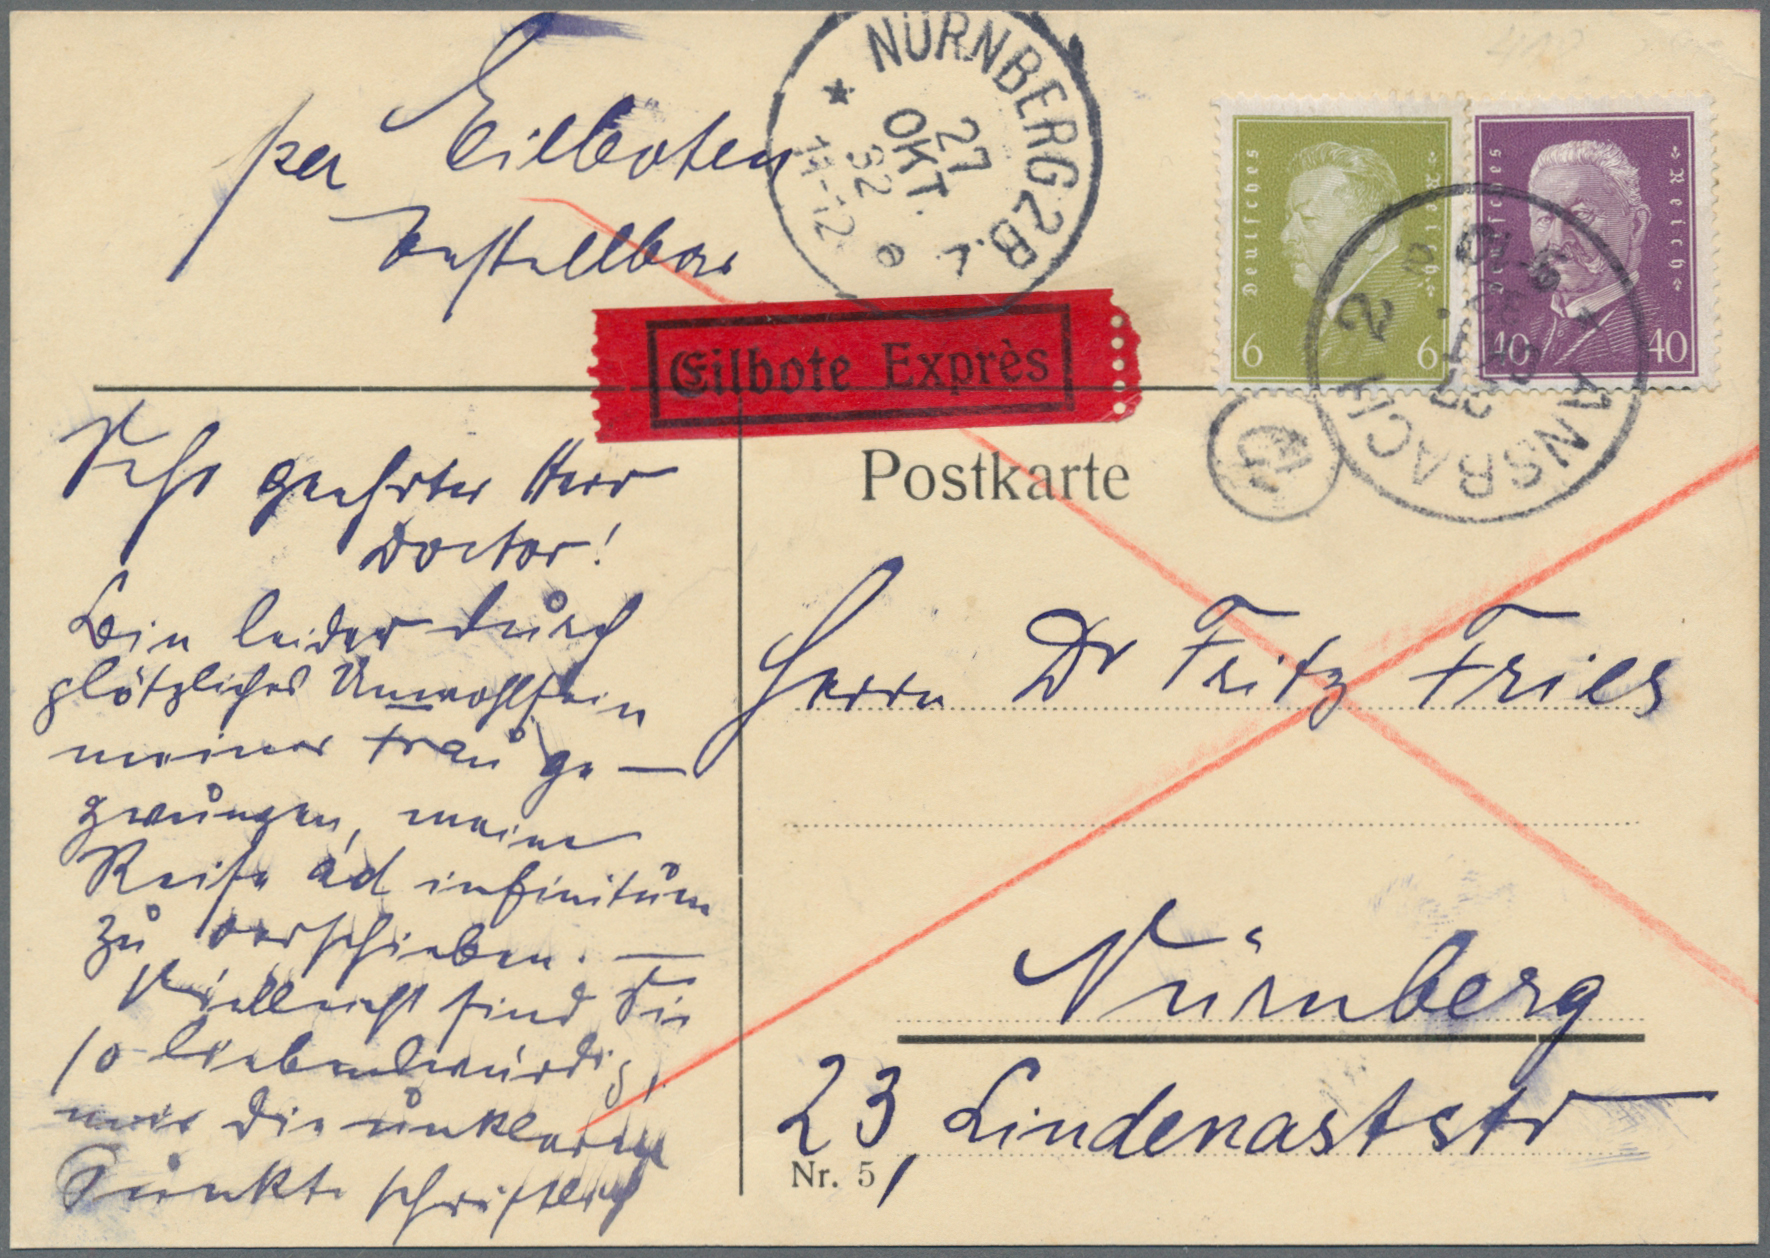 per Eilboten
bestellbar
NÜRNBERG 2 B.
27
OKT.
32
11-12
Deutsches Reich
6 6
Deutsches Reich
40 40
ANSBACH 2
27
OKT
9-10
Eilbote Exprès
Postkarte
Sehr geehrter Herr
Doctor!
Bin leider durch
plötzliches Unwohlsein
meiner Frau ge-
zwungen, meine
Reise ad infinitum
zu verschieben. —
Vielleicht sind Sie
so liebenswürdig,
mir die unklaren
Punkte schriftlich
Herrn Dr Fritz Fries
Nürnberg
23, Lindenaststr
Nr. 5